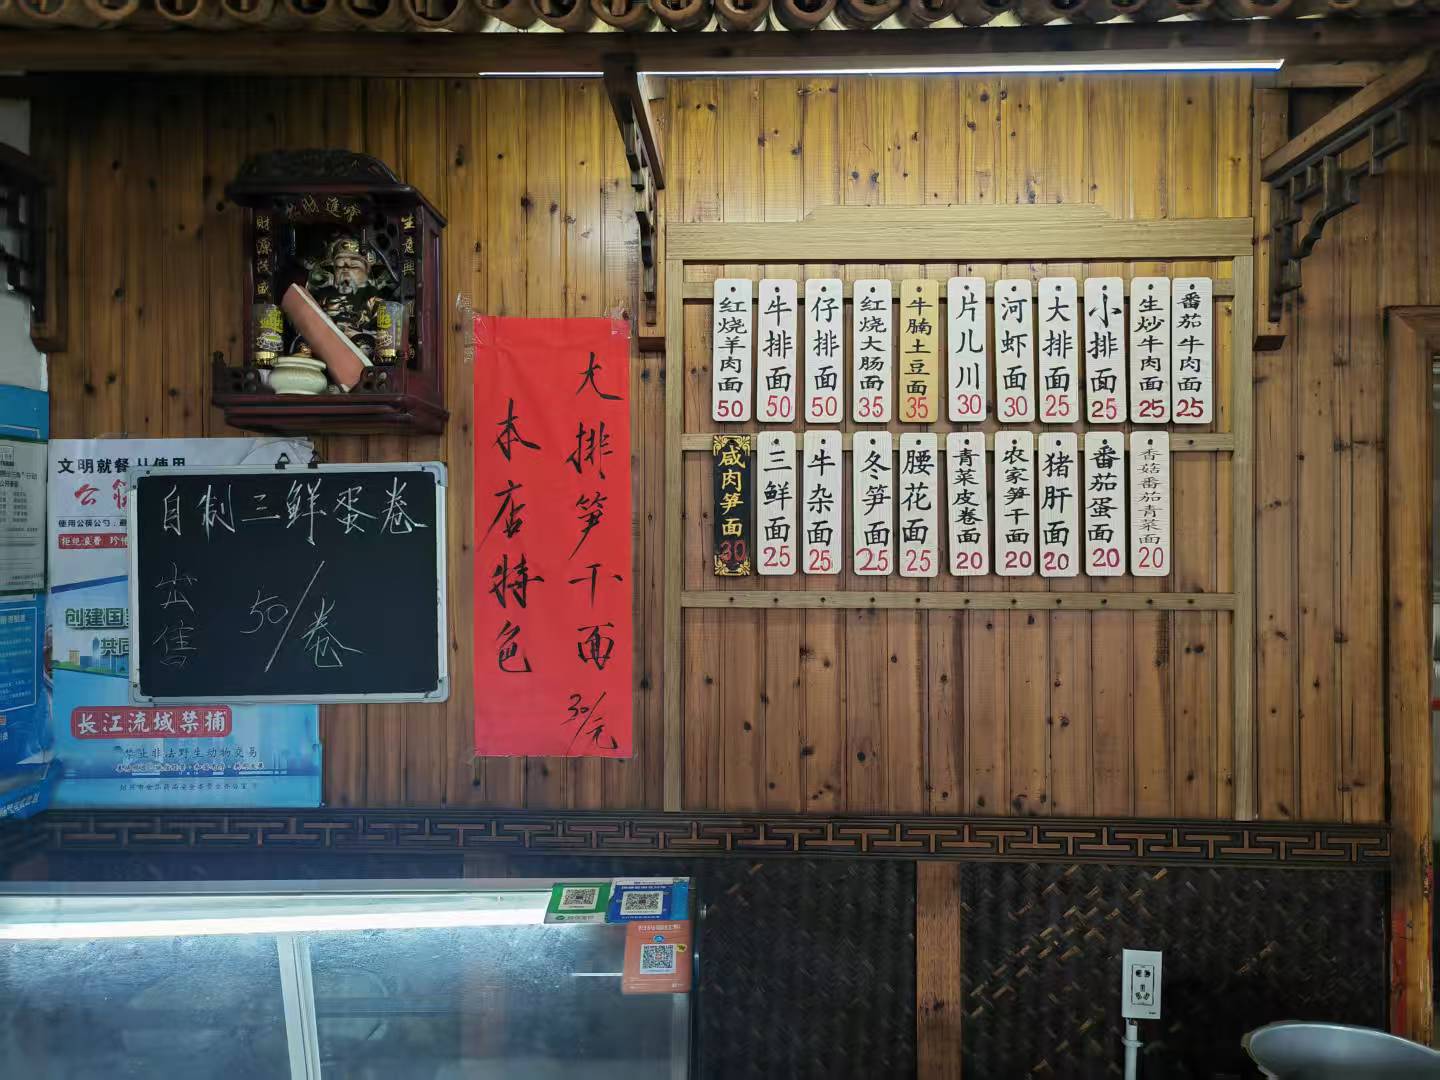 生意興
財源茂盛
文明就餐从使用
使用公筷公勺
拒绝浪费
创建国
共同
长江流域禁捕
禁止非法野生动物交易
自制三鲜蛋卷
出售
50/卷
大排笋干面 30/元
本店特色
红烧羊肉面 50
牛排面 50
仔排面 50
红烧大肠面 35
牛腩土豆面 35
片儿川 30
河虾面 30
大排面 25
小排面 25
生炒牛肉面 25
番茄牛肉面 25
咸肉笋面 30
三鲜面 25
牛杂面 25
冬笋面 25
腰花面 25
青菜皮卷面 20
农家笋干面 20
猪肝面 20
番茄蛋面 20
香菇番茄青菜面 20